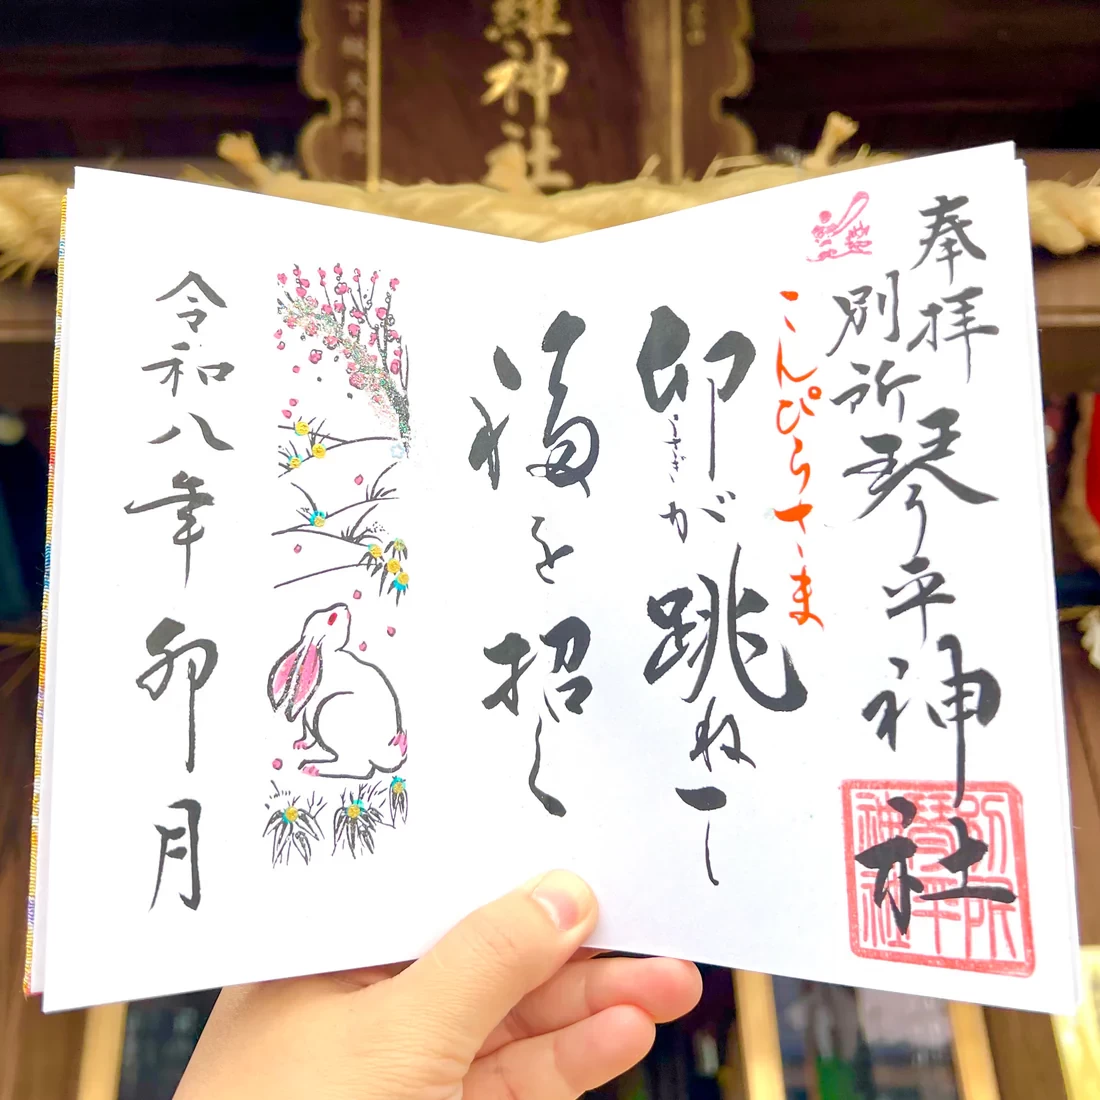 奉拝
別所琴平神社
こんぴらさま
卯が跳ねて
うさぎ
福を招く
令和八年卯月
別所
琴平
神社
神社